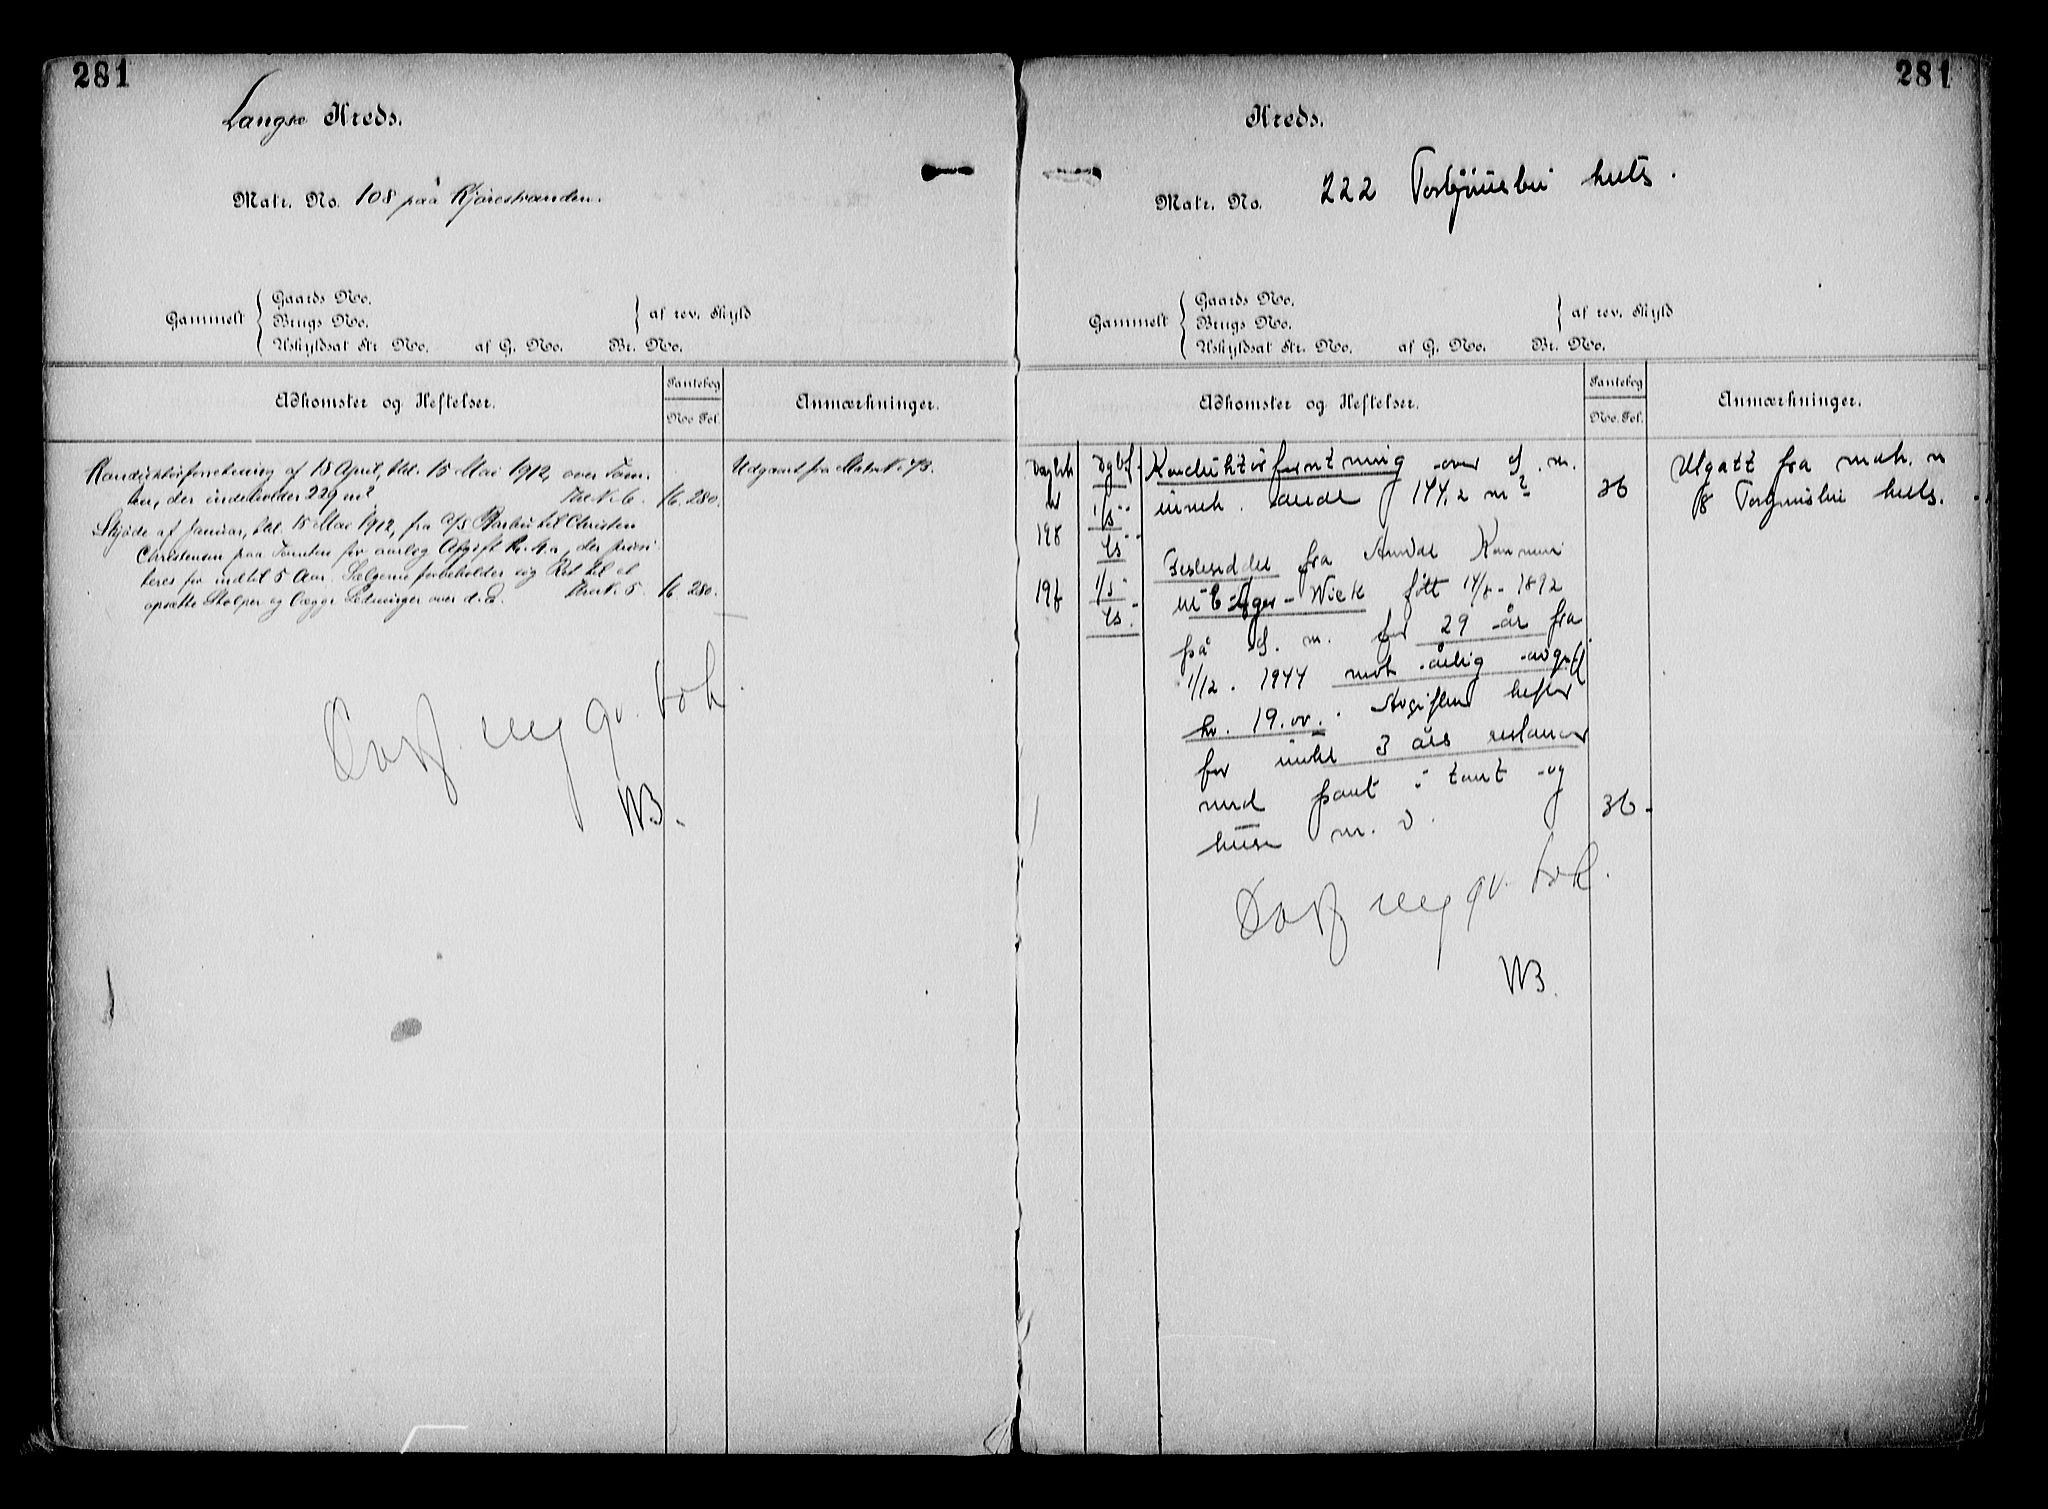 281
Langsæ Kreds.
Matr. No. 108 paa Kjørestranden.
Gammelt
Gaards No.
Brugs No.
Uskyldsat Str. No. af G. No. Br. No.
af rev. Skyld
Adkomster og Heftelser.
Pantebog
No. Fol.
Anmærkninger.
Konduktørforretning af 18 April, thl. 15 Mai 1912, over Tom-
ten, der indeholder 229 m² No. 6. 16. 280.
Udgaaet fra Matr. No. 78.
Skjøde af Januar, thl. 15 Mai 1912, fra A/S Barbu til Christen
Christensen paa Tomten for aarlig Afgift, der priori-
teres for indtil 5 Aar. Sælgerne forbeholder sig Ret til at
opsætte Stolper og lægge Ledninger over d. E. No. 5. 16. 280.
Overf. ny gr. bok
WB.
281
Kreds.
Matr. No. 222 Torbjørnsbu huts.
Gammelt
Gaards No.
Brugs No.
Uskyldsat Str. No. af G. No. Br. No.
af rev. Skyld
Adkomster og Heftelser.
Pantebog
No. Fol.
Anmærkninger.
Dagbok
nr
198
1/5
45
Konduktørforretning over d. m.
inneh. ande 144,2 m²
36
Utgått fra matr. n
8 Torbjørnsbu huts.
196
1/5
45
Festeseddel fra Arendal Kommune
til Wiek født 14/8-1892
på d. m. for 29 år fra
1/12. 1944 mot årlig avgift
kr. 19.00. Avgiften hefter
for inntil 3 års restanser
med pant i tomt og
huse m. v.
36
Overf. ny gr. bok.
WB.